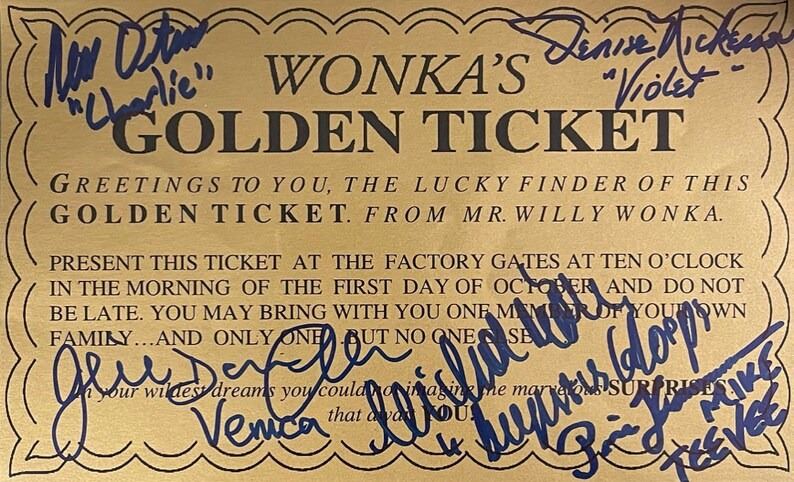 "Charlie"
Denise Nickerson
"Violet"
WONKA'S
GOLDEN TICKET
GREETINGS TO YOU, THE LUCKY FINDER OF THIS
GOLDEN TICKET. FROM MR. WILLY WONKA.
PRESENT THIS TICKET AT THE FACTORY GATES AT TEN O'CLOCK
IN THE MORNING OF THE FIRST DAY OF OCTOBER AND DO NOT
BE LATE. YOU MAY BRING WITH YOU ONE MEMBER OF YOUR OWN
FAMILY...AND ONLY ONE...BUT NO ONE ELSE
In your wildest dreams you could not imagine the marvelous SURPRISES
that await YOU!
Veruca
"Augustus Gloop"
MIKE
TEEVEE